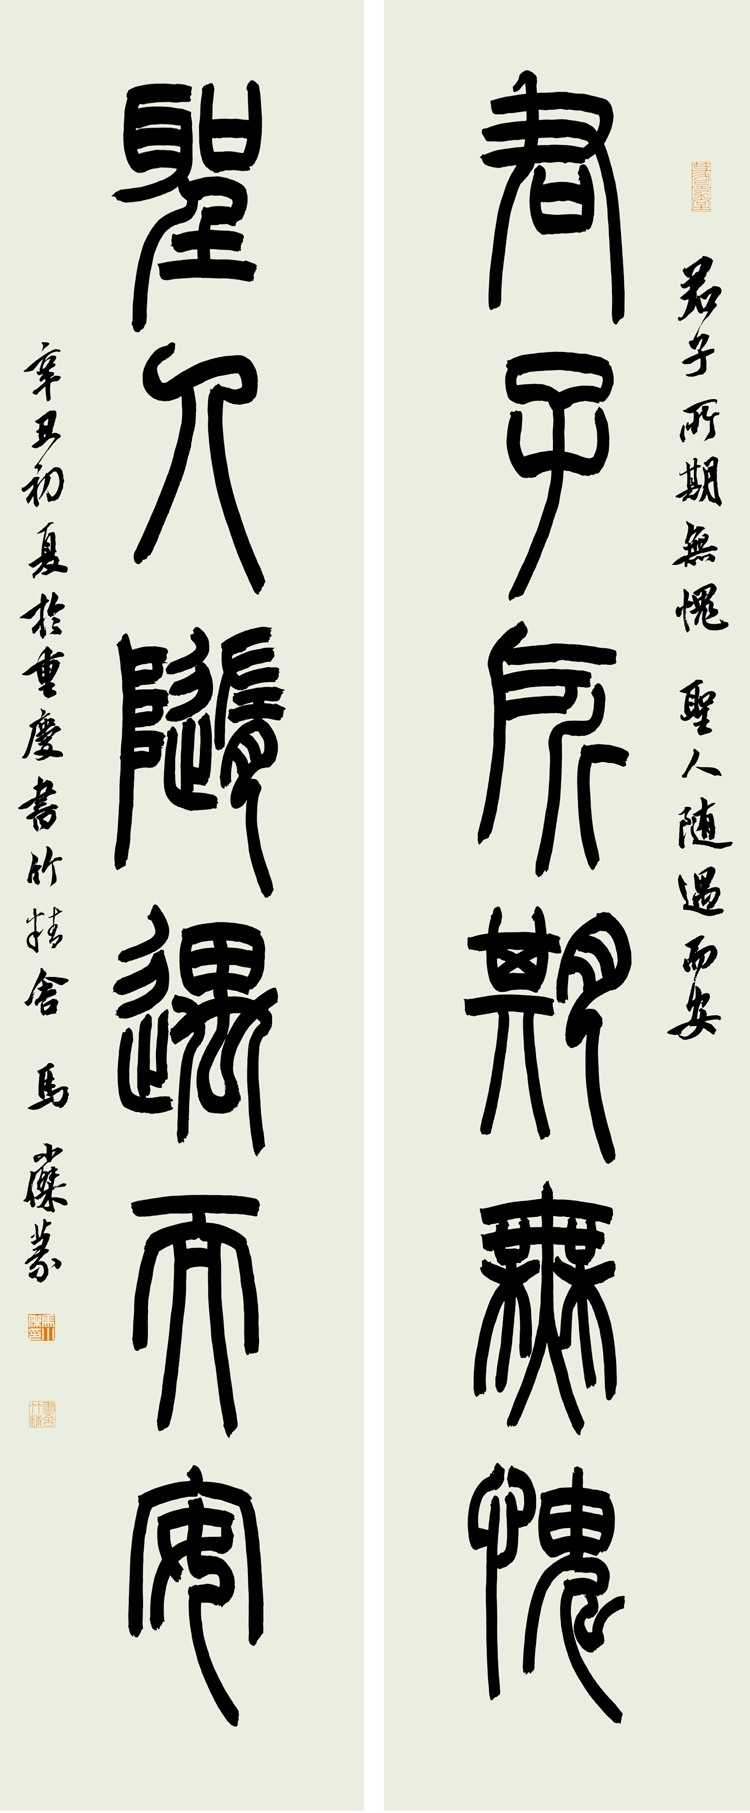 君子所期無愧
君子所期無愧 聖人随遇而安
聖人隨遇而安
辛丑初夏於重慶書竹精舍 馬小傑篆